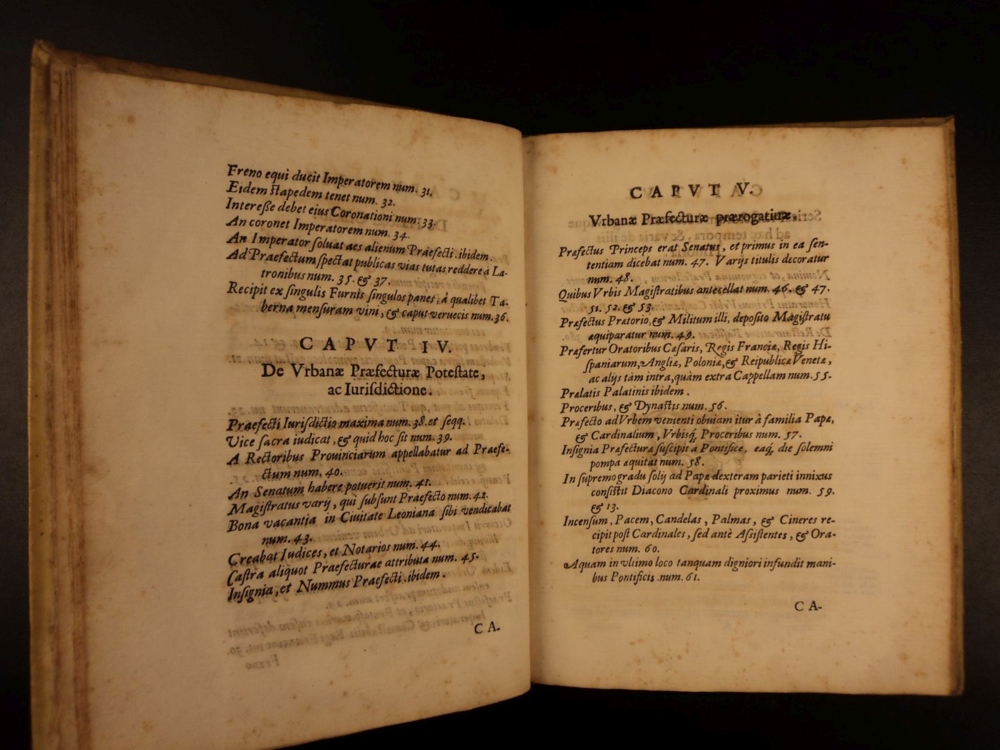 Freno equi ducit Imperatorem num. 31.
Eidem stapedem tenet num. 32.
Interesse debet eius Coronationi num. 33.
An coronet Imperatorem num. 34.
An Imperator soluat aes alienum Praefecti. ibidem.
Ad Praefectum spectat publicas vias tutas reddere à La-
tronibus num. 35. & 37.
Recipit ex singulis Furnis singulos panes, à qualibet Ta-
berna mensuram vini, & caput veruecis num. 36.
CAPVT IV.
De Vrbanæ Præfecturæ Potestate,
ac Iurisdictione.
Praefecti Iurisdictio maxima num. 38. et seqq.
Vice sacra iudicat, & quid hoc sit num. 39.
A Rectoribus Prouinciarum appellabatur ad Praefe-
ctum num. 40.
An Senatum habere potuerit num. 41.
Magistratus varij, qui subsunt Praefecto num. 42.
Bona vacantia in Ciuitate Leoniana sibi vendicabat
num. 43.
Creabat Iudices, et Notarios num. 44.
Castra aliquot Praefecturae attributa num. 45.
Insignia, et Nummus Praefecti. ibidem.
CA-
CAPVT V.
Vrbanæ Præfecturæ prærogatiuæ.
Præfectus Princeps erat Senatus, et primus in ea sen-
tentiam dicebat num. 47. Varijs titulis decoratur
num. 48.
Quibus Vrbis Magistratibus antecellat num. 46. & 47.
51. 52. & 53.
Præfectus Prætorio, & Militum illi, deposito Magistratu
æquiparatur num. 49.
Præfertur Oratoribus Cæsaris, Regis Franciæ, Regis Hi-
spaniarum, Angliæ, Poloniæ, & Reipublicæ Venetæ,
ac alijs tàm intra, quàm extra Cappellam num. 55.
Prælatis Palatinis ibidem.
Proceribus, & Dynastis num. 56.
Præfecto ad Vrbem venienti obuiam itur à familia Papæ,
& Cardinalium, Vrbisq́; Proceribus num. 57.
Insignia Præfecturæ suscipit a Pontifice, eaq́; die solemni
pompa æquitat num. 58.
In supremo gradu solij ad Papæ dexteram parieti innixus
consistit Diacono Cardinali proximus num. 59.
& 13.
Incensum, Pacem, Candelas, Palmas, & Cineres re-
cipit post Cardinales, sed antè Assistentes, & Ora-
tores num. 60.
Aquam in vltimo loco tanquam digniori infundit mani-
bus Pontificis num. 61.
CA-